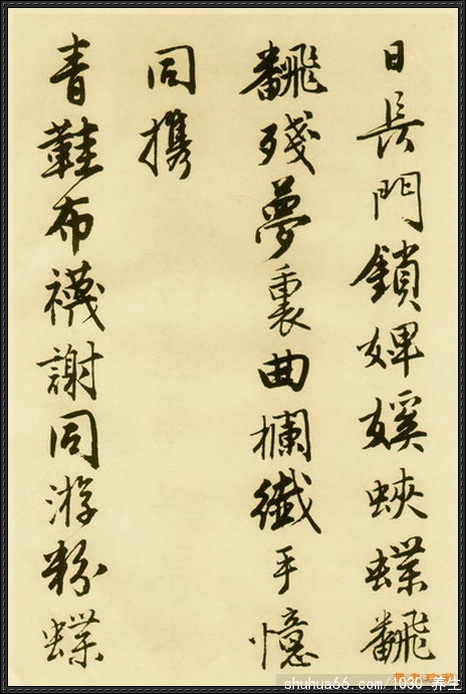 日長門鎖婢㜎蛺蝶飜
飜殘夢裏曲欄纖手憶
同携
青鞋布襪謝同游粉蝶
shuhua66.com/1030 养生